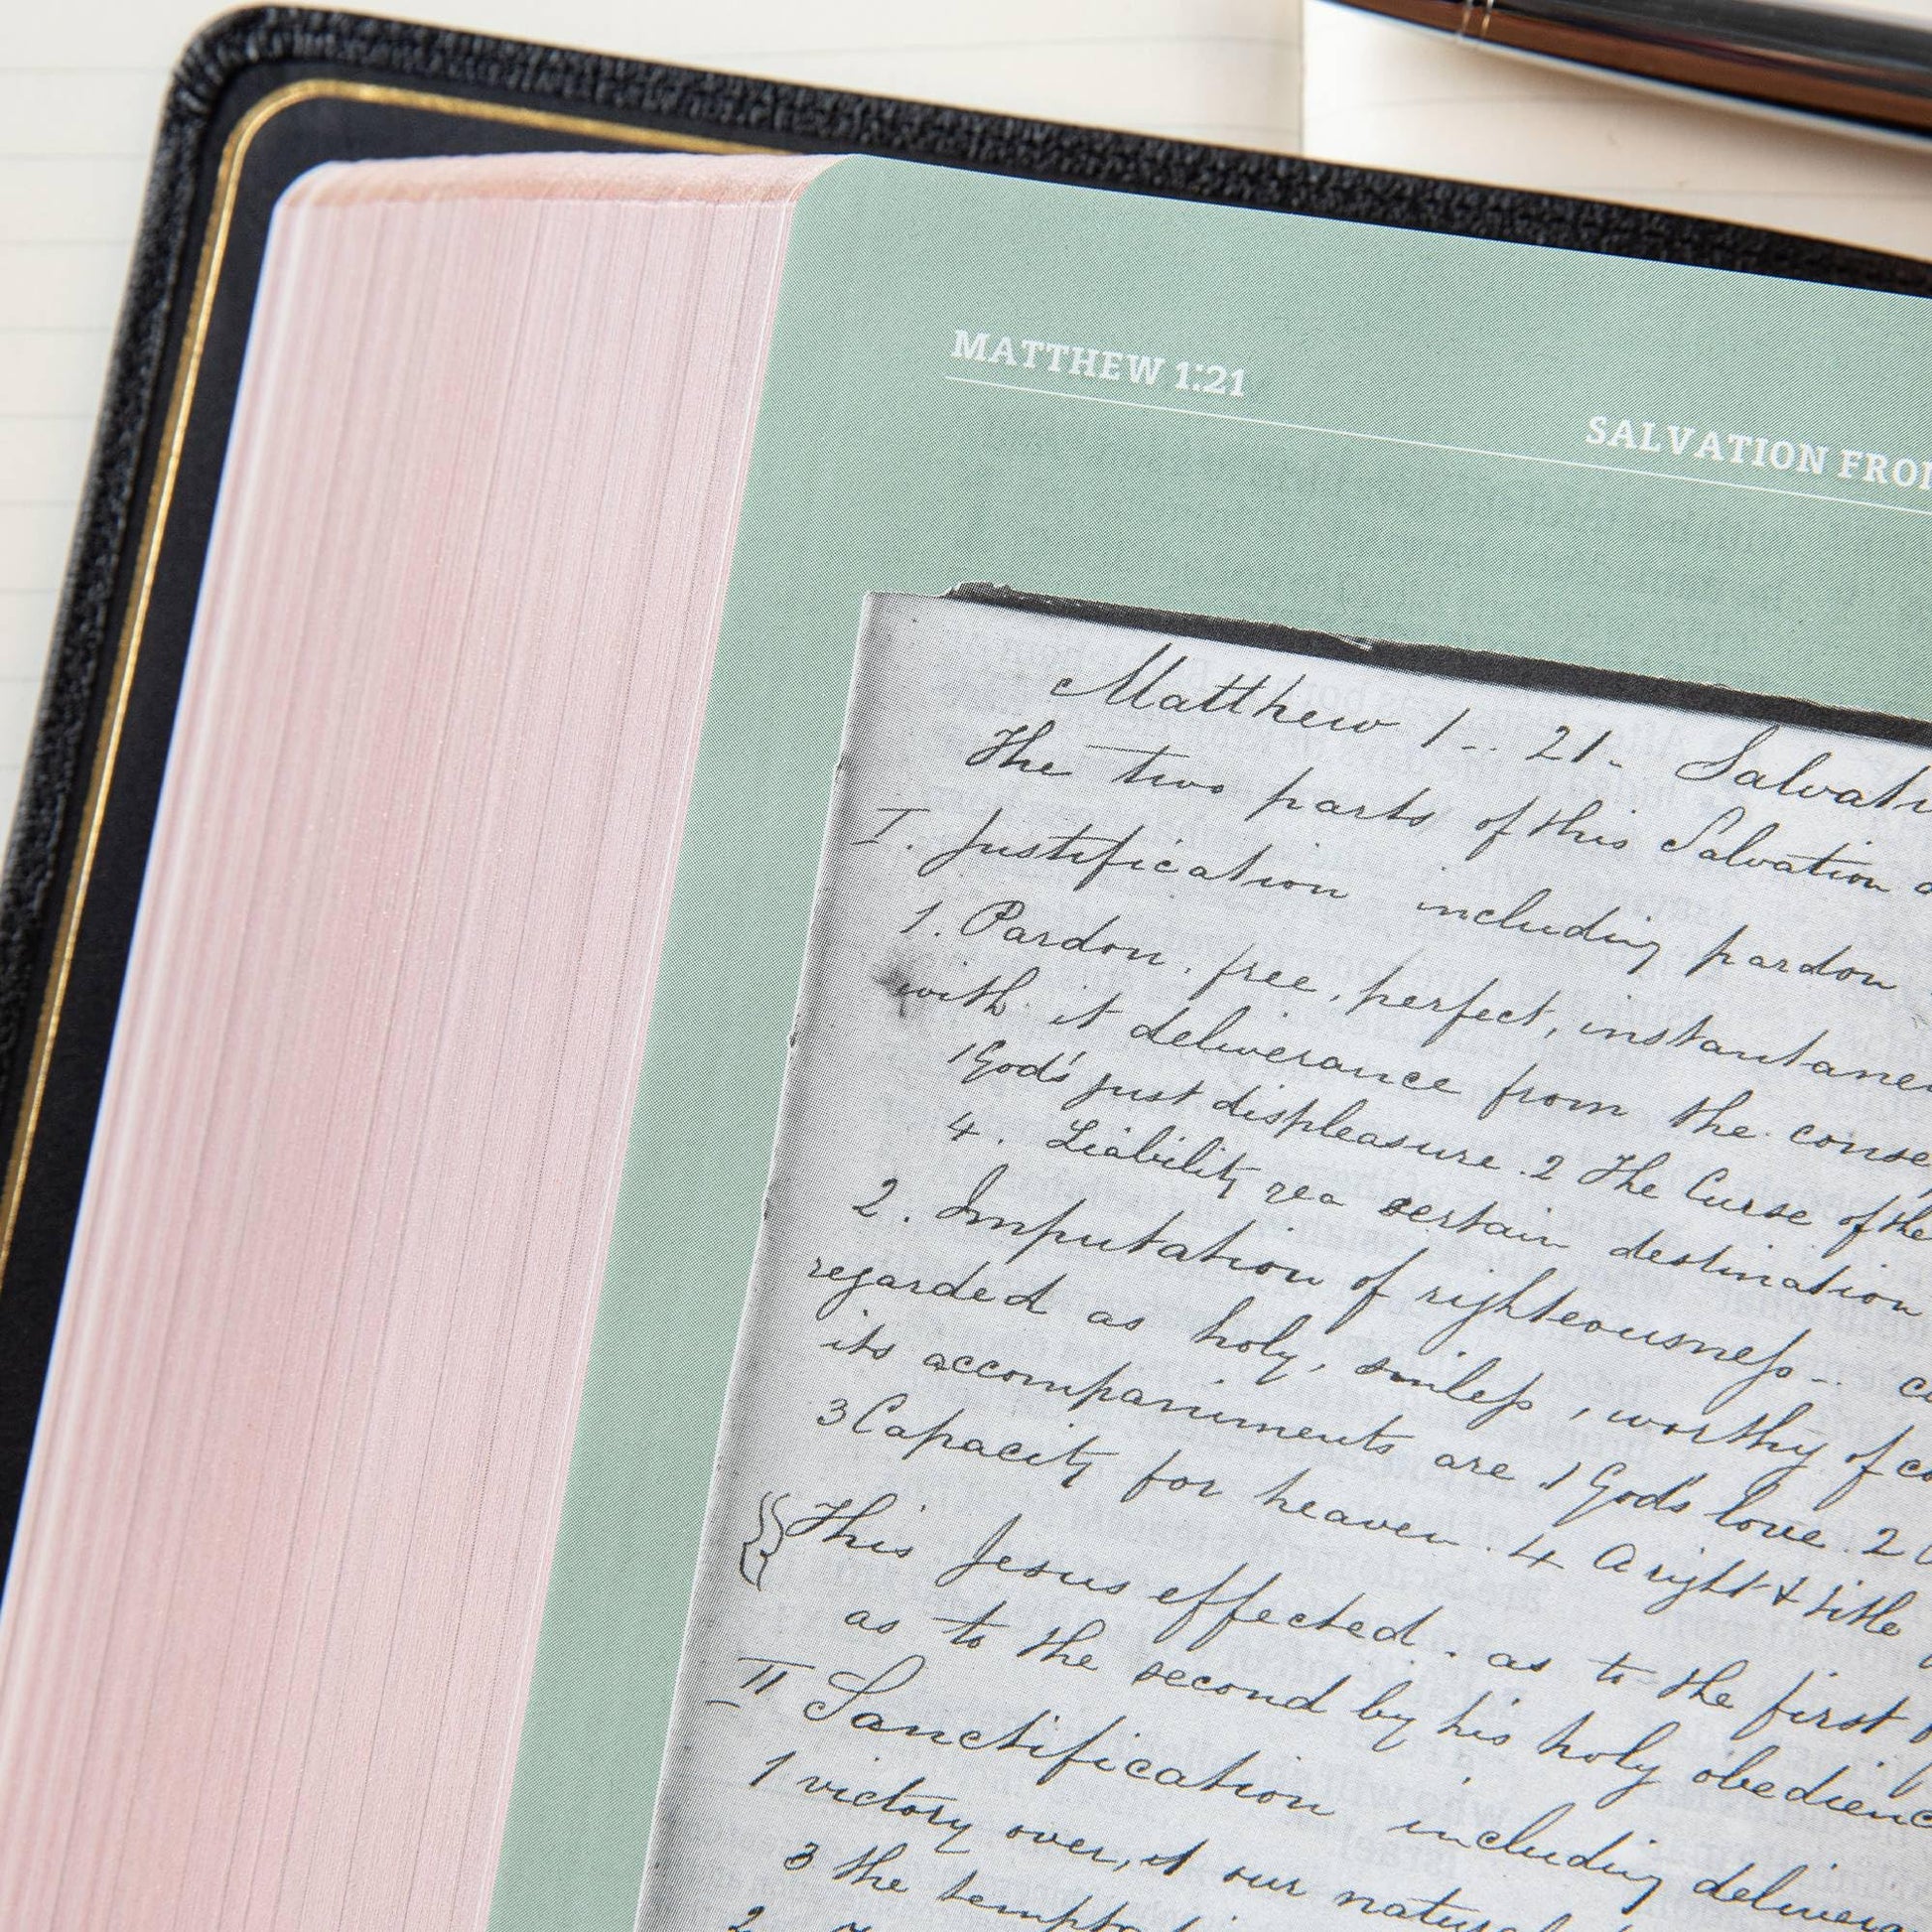 MATTHEW 1:21
SALVATION FRO
Matthew 1.. 21- Salvati
The two parts of this Salvation a
I. Justification including pardon
1. Pardon. free, perfect, instantane
with it deliverance from the conse
1 God's just displeasure. 2 The Curse of the
4. Liability to a certain destination
2. Imputation of righteousness--
regarded as holy, sinless, worthy of
its accompaniments are 1 God's love. 2
3 Capacity for heaven. 4 A right & title
This Jesus effected. as to the first
as to the second by his holy obedienc
II Sanctification including delivera
1 victory over, it our natur
3 the tempta
2.